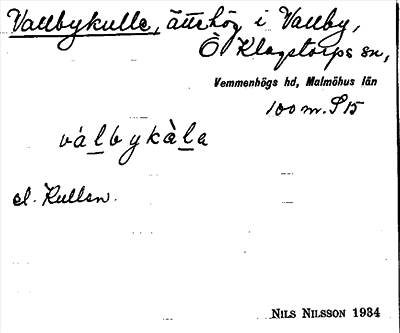 Vallbykulle, ättehög i Vallby,
Ö Klagstorps sn,
Vemmenhögs hd, Malmöhus län
100 m. S 15
válbykàla
el. Kullen.
NILS NILSSON 1934